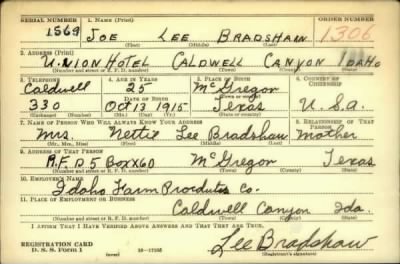 SERIAL NUMBER 1. NAME (Print) ORDER NUMBER
1569 JOE LEE BRADSHAW 1306
(First) (Middle) (Last)
2. ADDRESS (Print)
UNION HOTEL CALDWELL CANYON IDAHO
(Number and street or R. F. D. number) (Town) (County) (State)
3. TELEPHONE 4. AGE IN YEARS 5. PLACE OF BIRTH 6. COUNTRY OF CITIZENSHIP
Caldwell 25 McGregor
DATE OF BIRTH
330 Oct 13 1915 Texas U.S.a.
7. NAME OF PERSON WHO WILL ALWAYS KNOW YOUR ADDRESS 8. RELATIONSHIP OF THAT PERSON
Mrs. Nettie Lee Bradshaw Mother
(Mr., Mrs., Miss) (First) (Middle) (Last)
9. ADDRESS OF THAT PERSON
R.F.D 5 Box X60 McGregor Texas
(Number and street or R. F. D. number) (Town) (County) (State)
10. EMPLOYER'S NAME
Idaho Farm Procdutes Co.
11. PLACE OF EMPLOYMENT OR BUSINESS
Caldwell Canyon Ida.
(Number and street or R. F. D. number) (Town) (County) (State)
I AFFIRM THAT I HAVE VERIFIED ABOVE ANSWERS AND THAT THEY ARE TRUE.
REGISTRATION CARD
D. S. S. Form 1 (over) 16-17105 Lee Bradshaw